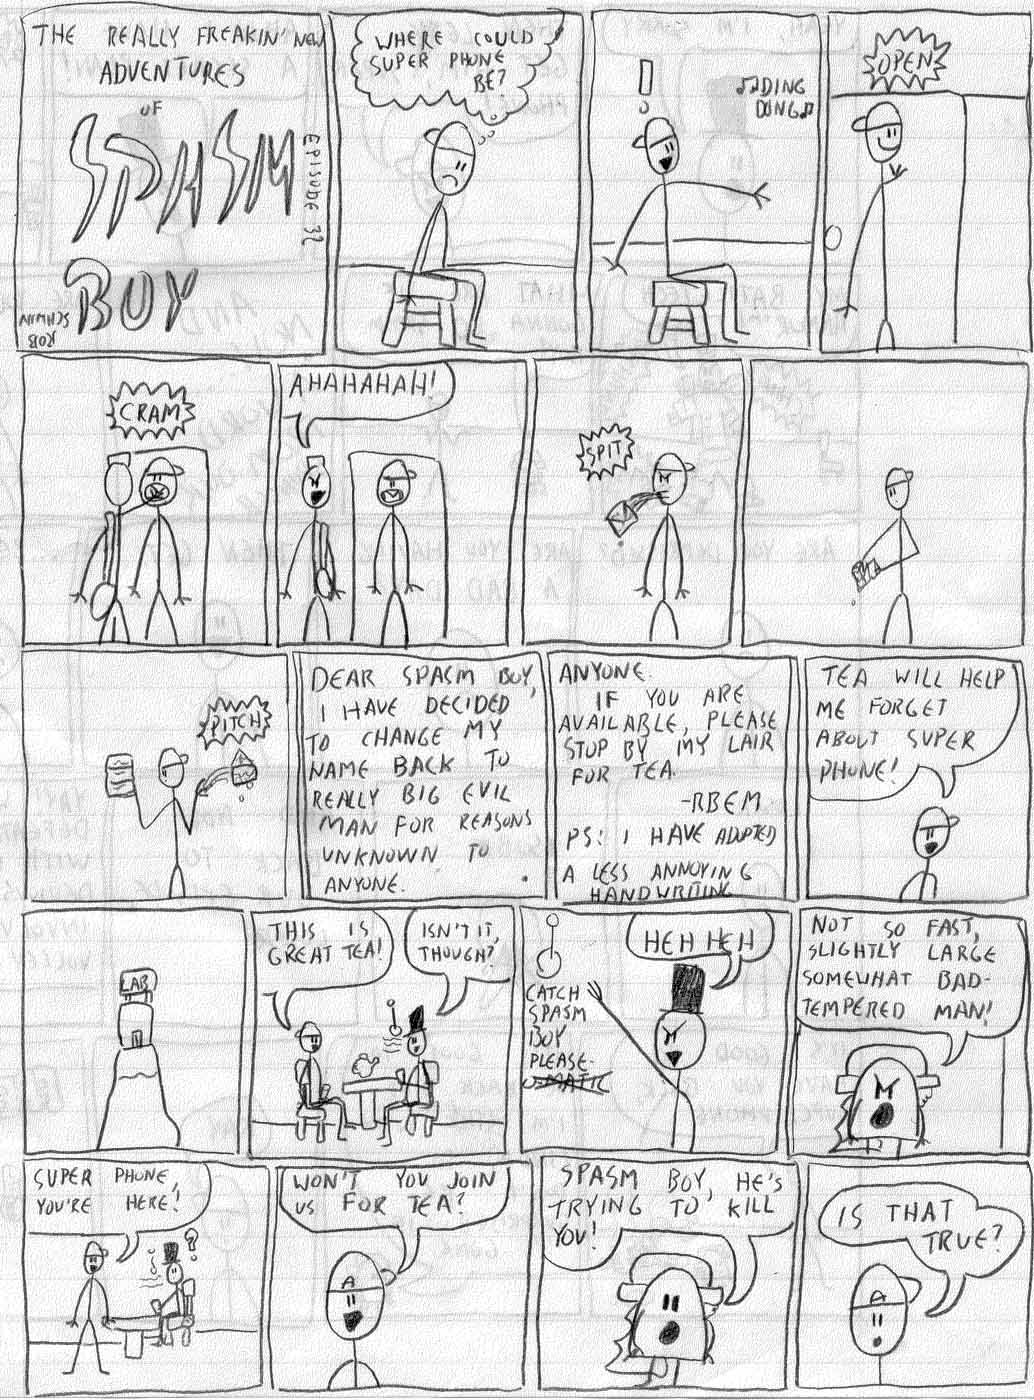 THE REALLY FREAKIN' NEW
ADVENTURES
OF
SPASM
BOY
EPISODE 32
ROB
SCHWIN
WHERE COULD
SUPER PHONE
BE?
!
♫DING
DONG♫
OPEN
CRAM
AHAHAHAH!
SPIT
PITCH
DEAR SPASM BOY,
I HAVE DECIDED
TO CHANGE MY
NAME BACK TO
REALLY BIG EVIL
MAN FOR REASONS
UNKNOWN TO
ANYONE.
ANYONE.
IF YOU ARE
AVAILABLE, PLEASE
STOP BY MY LAIR
FOR TEA.
-RBEM
PS: I HAVE ADOPTED
A LESS ANNOYING
HANDWRITING
TEA WILL HELP
ME FORGET
ABOUT SUPER
PHONE!
LAB
THIS IS
GREAT TEA!
ISN'T IT,
THOUGH?
CATCH
SPASM
BOY
PLEASE-
O-MATIC
HEH HEH
NOT SO FAST,
SLIGHTLY LARGE
SOMEWHAT BAD-
TEMPERED MAN!
SUPER PHONE,
YOU'RE HERE!
?
WON'T YOU JOIN
US FOR TEA?
SPASM BOY, HE'S
TRYING TO KILL
YOU!
IS THAT
TRUE?